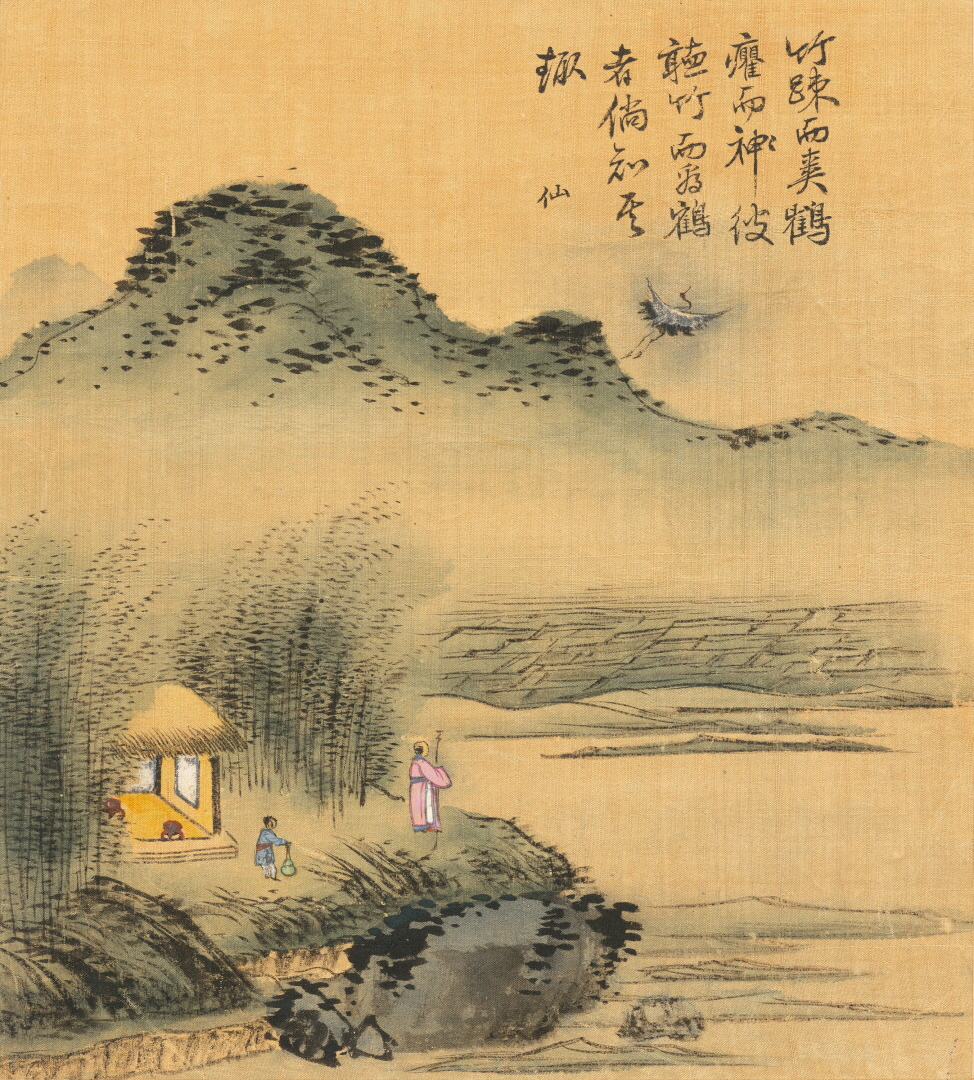 竹踈而爽鶴
癯而神彼
聽竹而看鶴
者倘知其
趣
仙